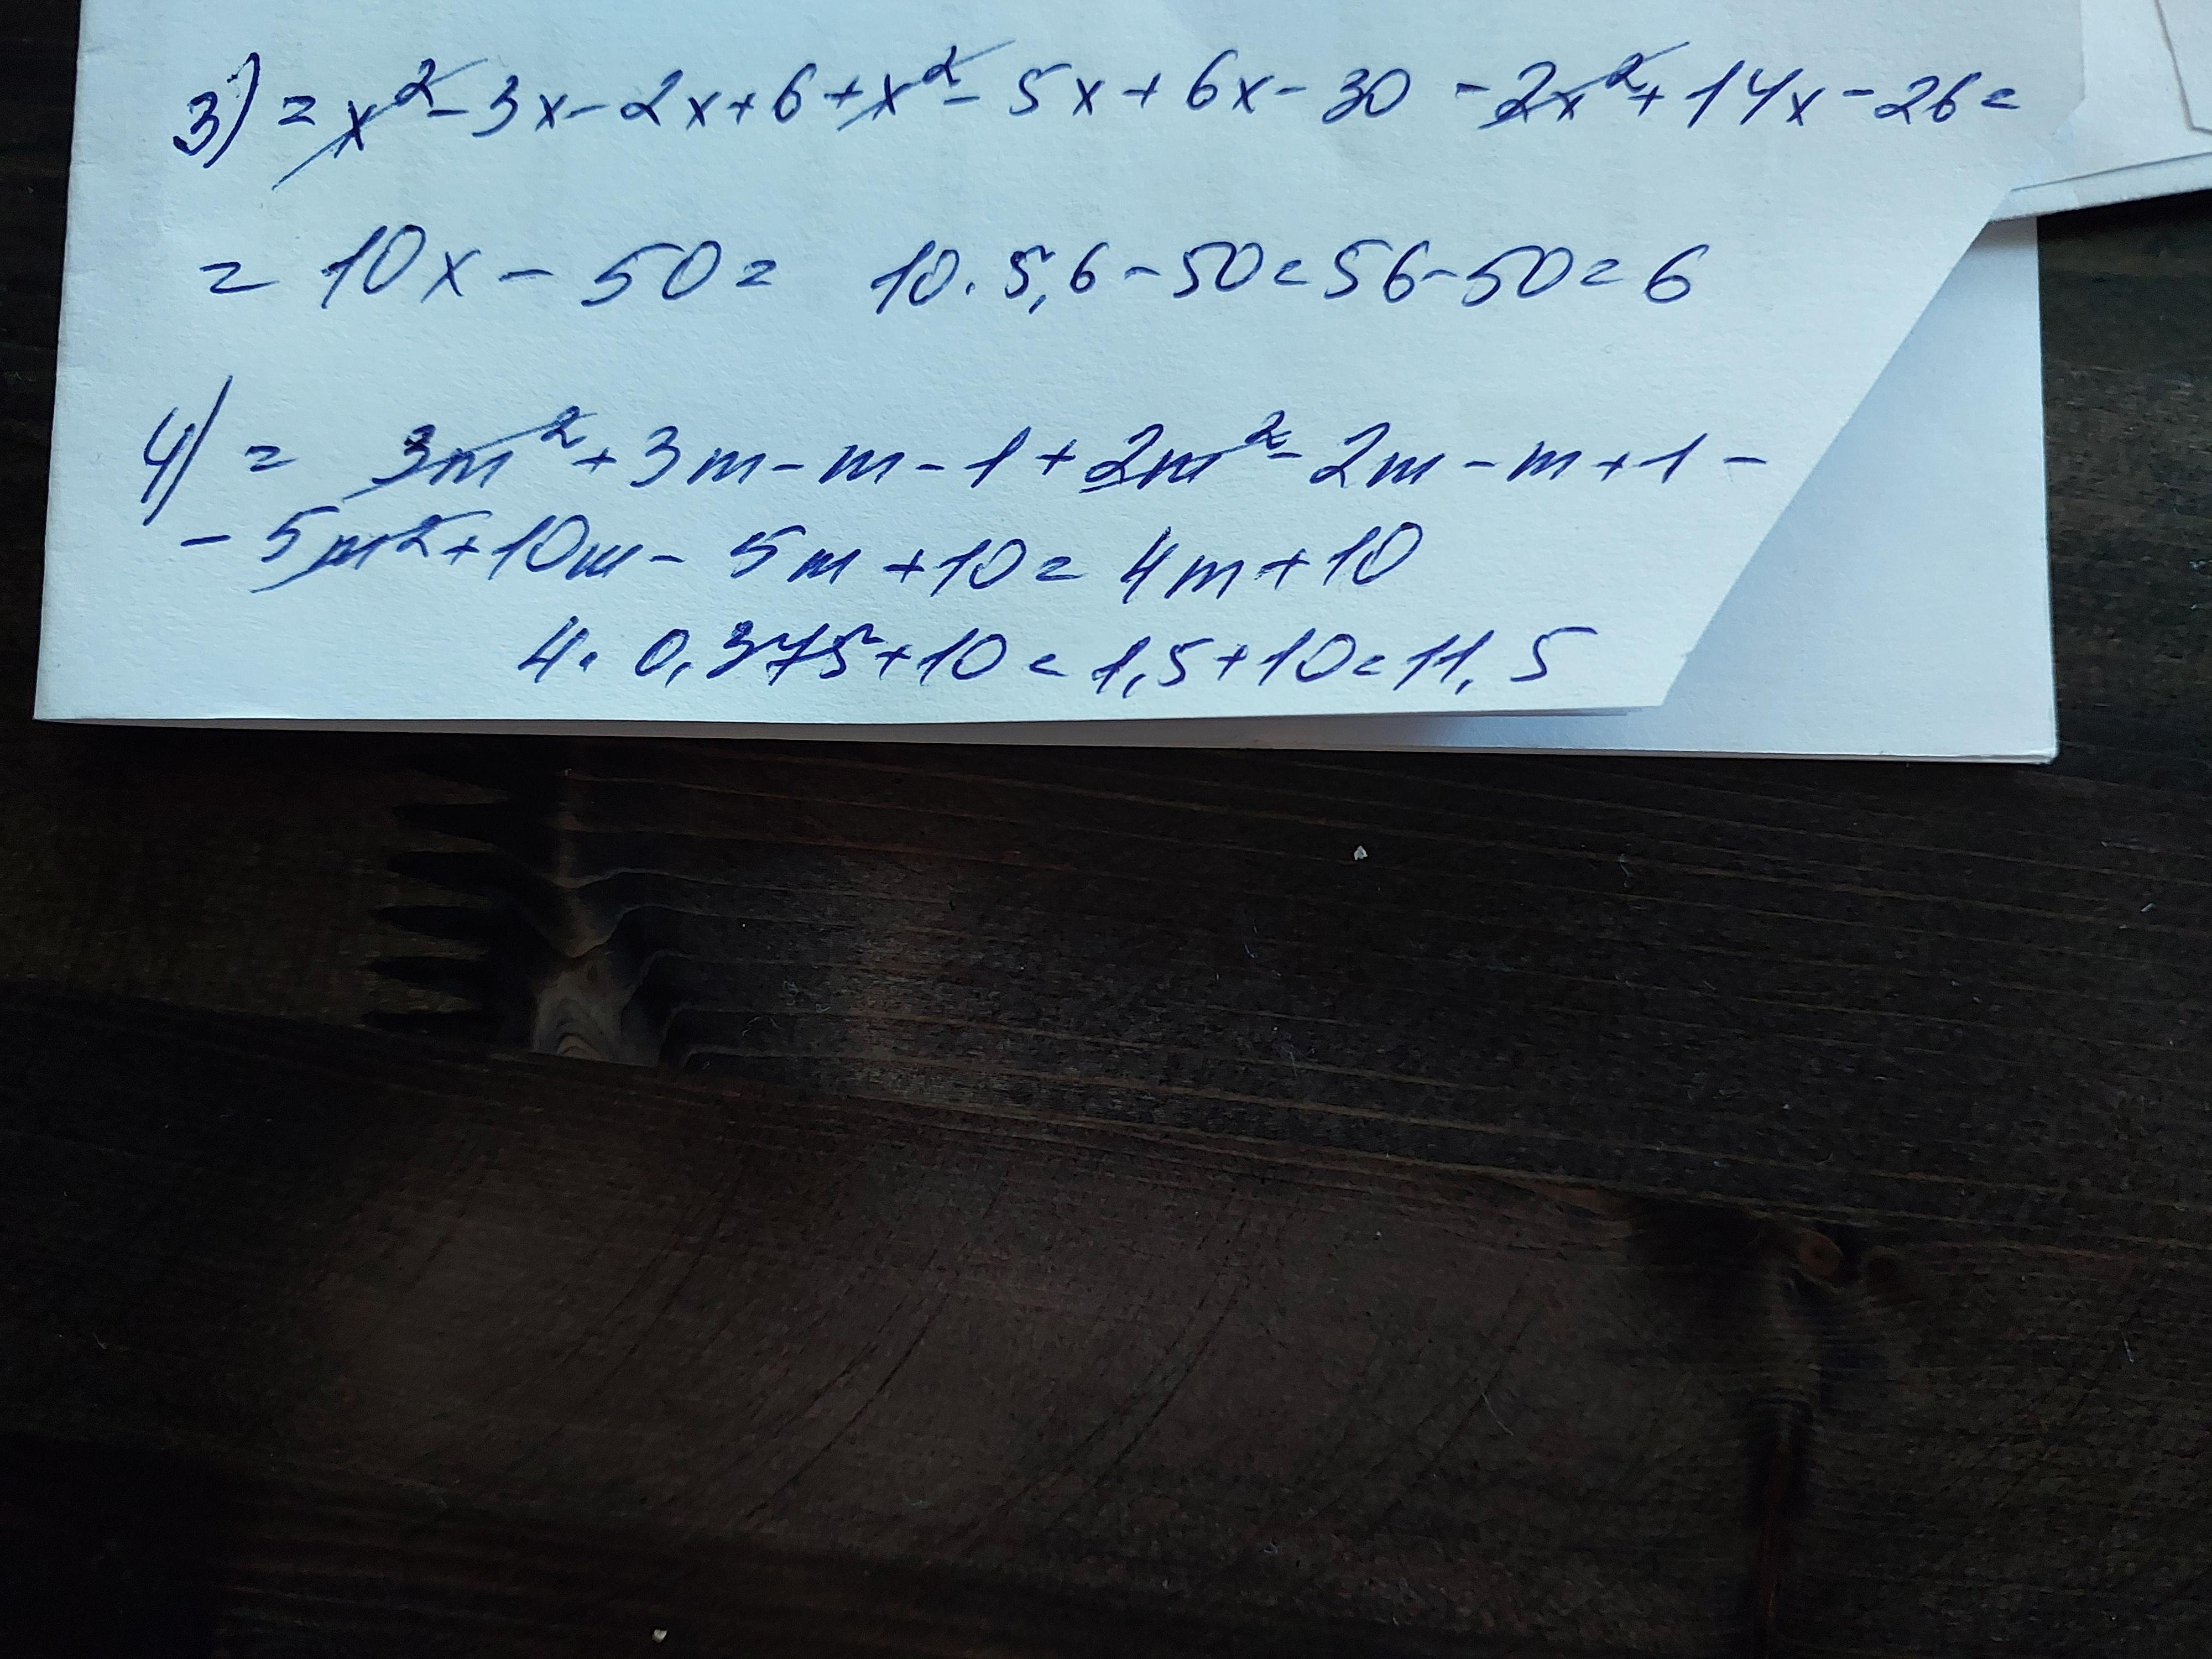 3) = x² - 3x - 2x + 6 + x² - 5x + 6x - 30 - 2x² + 14x - 26 =
= 10x - 50 = 10 · 5,6 - 50 = 56 - 50 = 6
4) = 3m² + 3m - m - 1 + 2m² - 2m - m + 1 -
- 5m² + 10m - 5m + 10 = 4m + 10
4 · 0,375 + 10 = 1,5 + 10 = 11,5